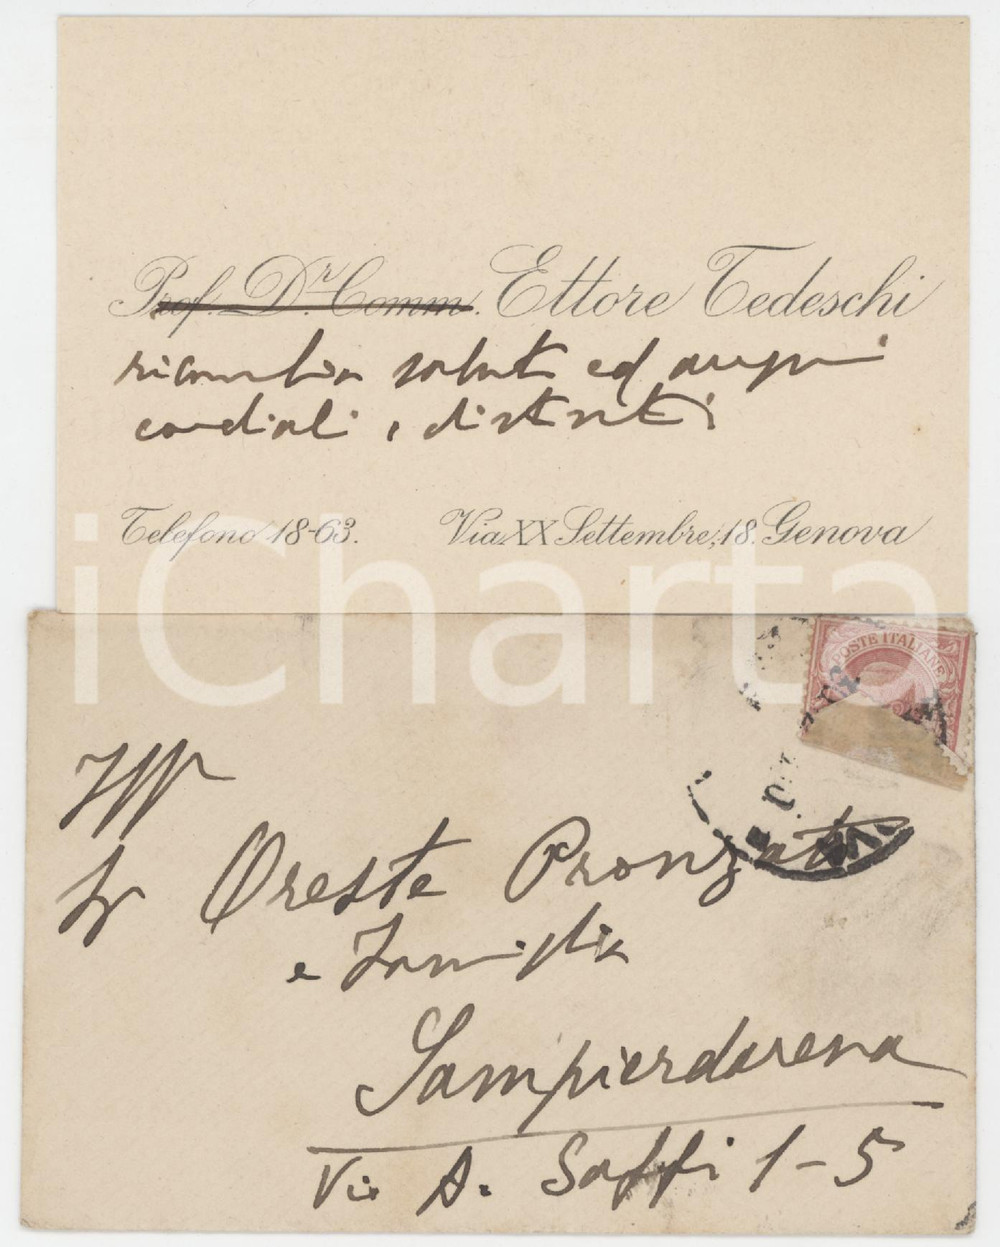 Prof. Dr. Comm. Ettore Tedeschi
ricambia saluti ed auguri
cordiali e distinti
Telefono 18-63. Via XX Settembre, 18. Genova
iCharta
POSTE ITALIANE
Ill
Sr Oreste Pronzato
e Famiglia
Sampierdarena
Via A. Saffi 1-5